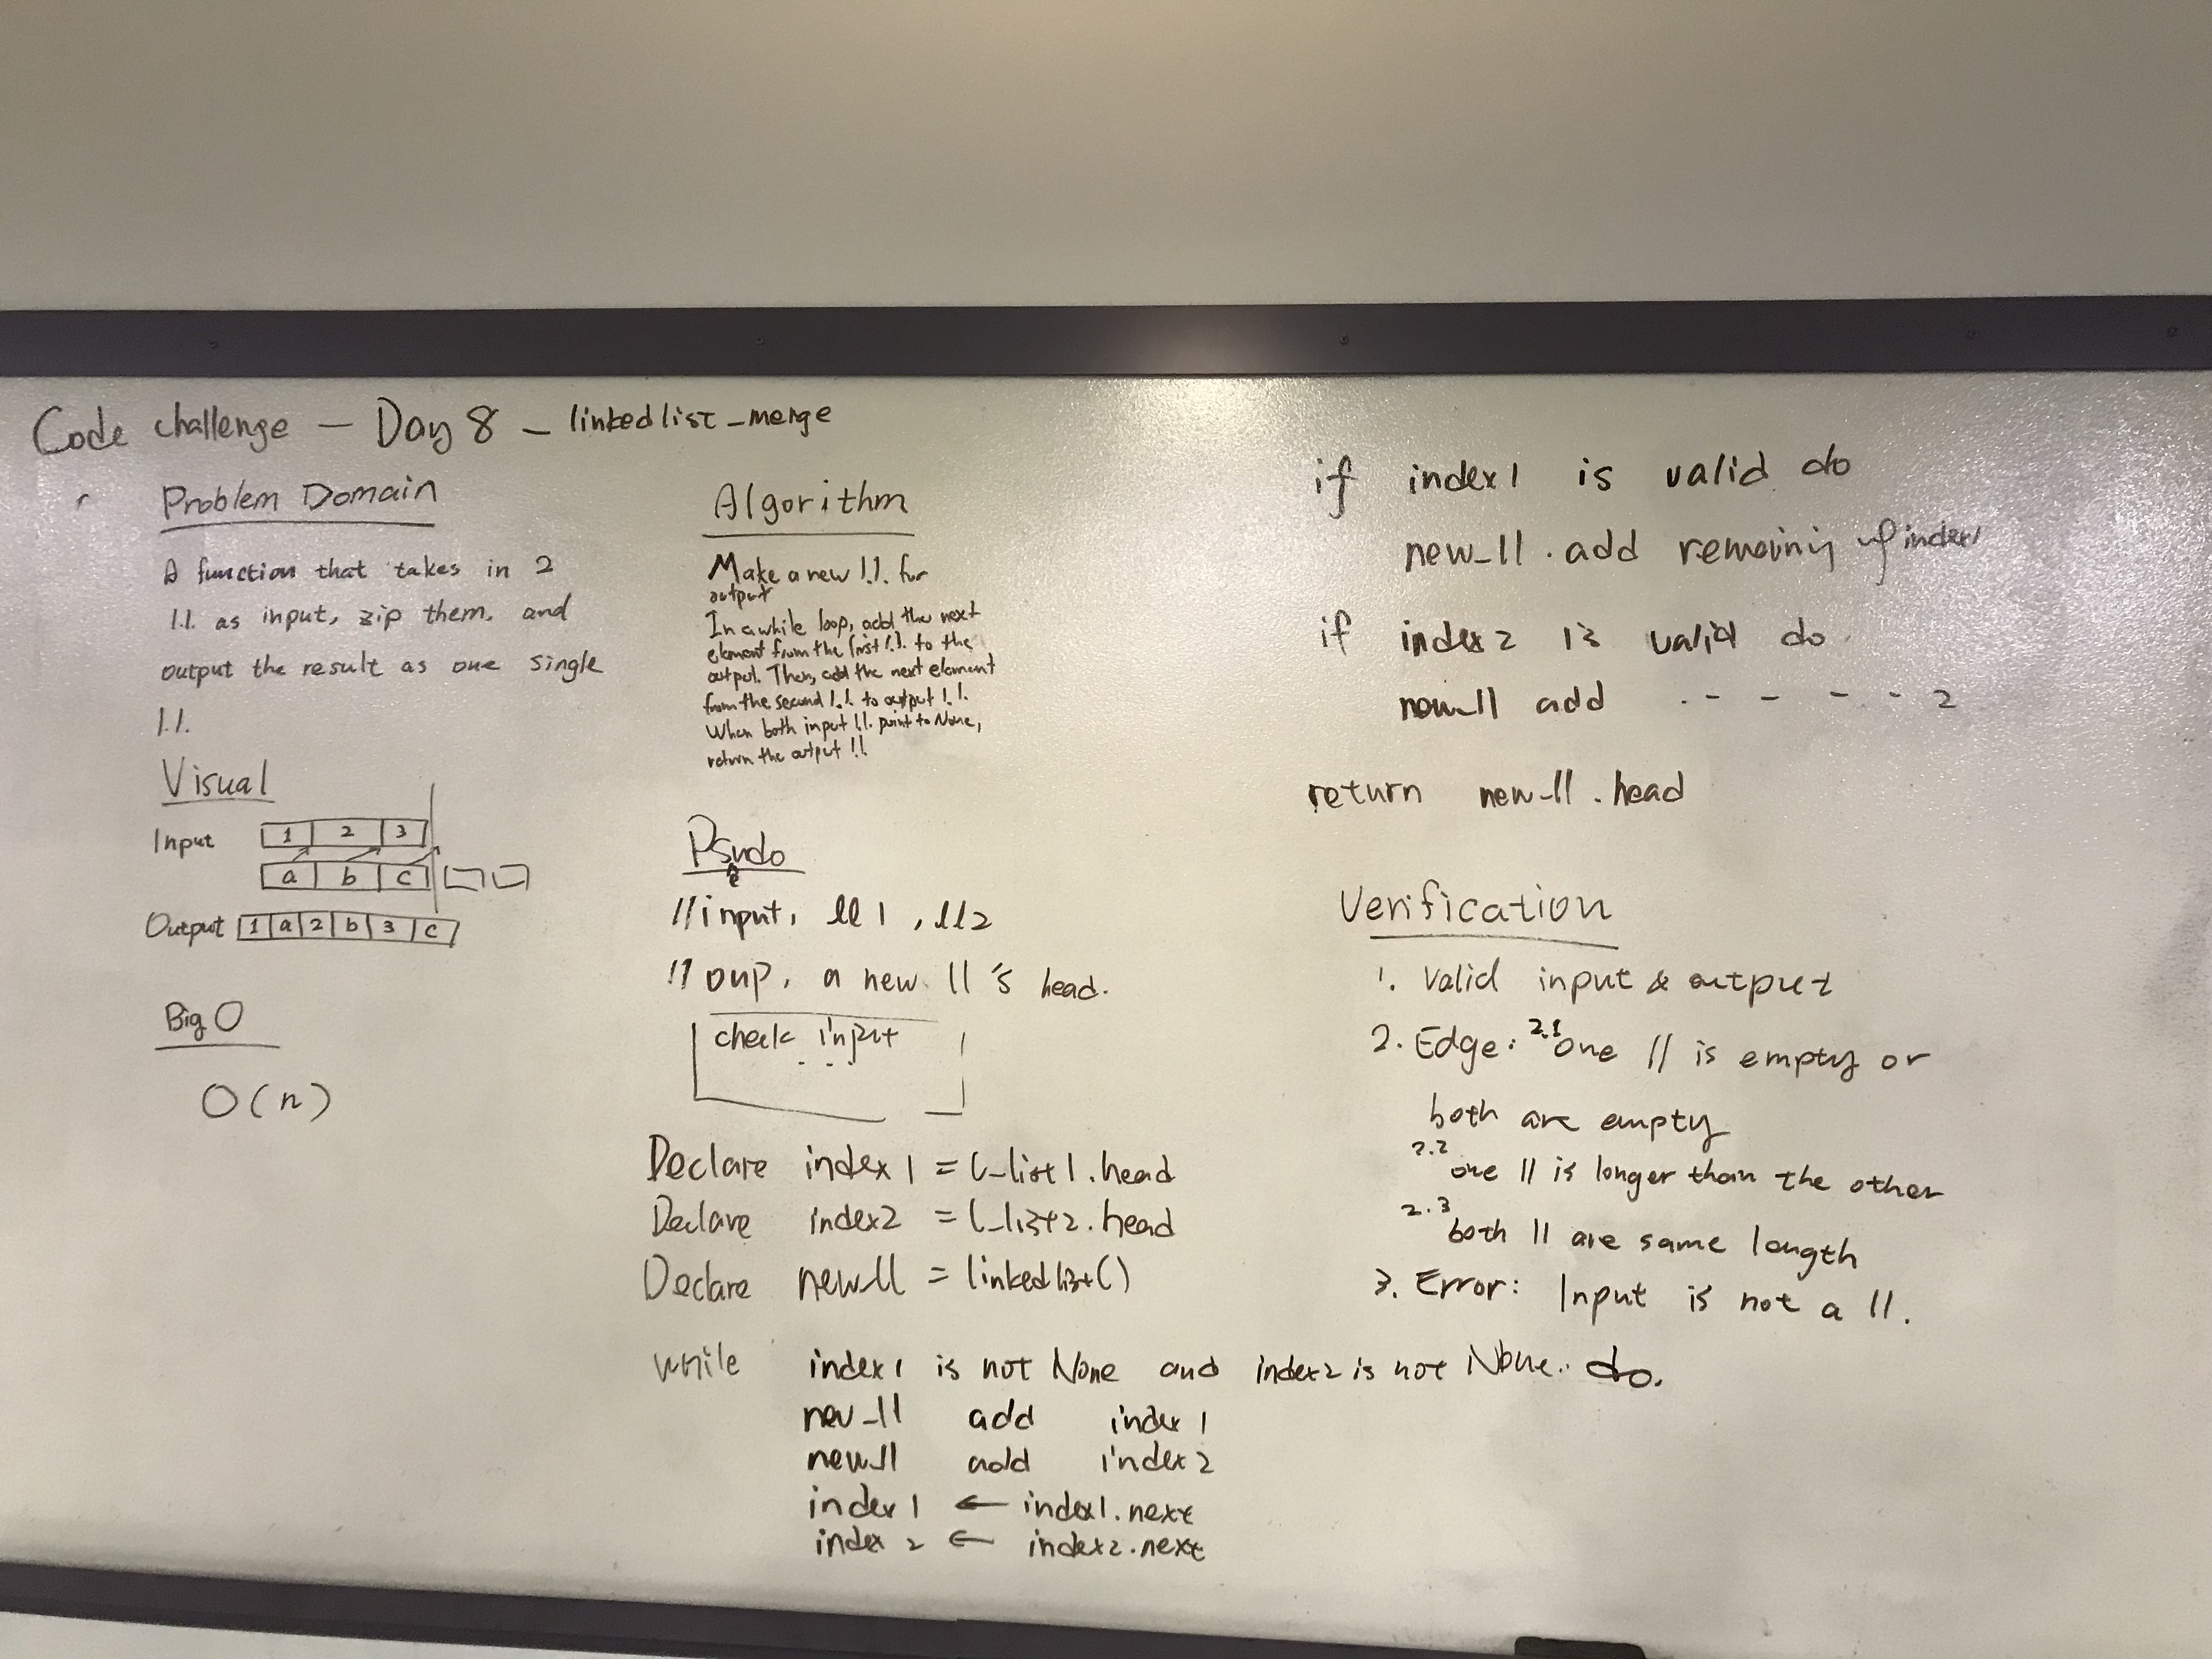 Code challenge — Day 8 — linkedlist_merge
Problem Domain
A function that takes in 2
l.l. as input, zip them, and
output the result as one single
l.l.
Visual
Input 1 2 3
a b c
Output 1 a 2 b 3 c
Big O
O(n)
Algorithm
Make a new l.l. for
output
In a while loop, add the next
element from the first l.l. to the
output. Then, add the next element
from the second l.l. to output l.l.
When both input l.l. point to None,
return the output l.l.
Psudo
e
//input, ll1, ll2
// oup, a new ll's head.
check input
...
Declare index1 = l_list1.head
Declare index2 = l_list2.head
Declare new_ll = linkedlist()
while index1 is not None and index2 is not None. do.
new_ll add index1
new_ll add index2
index1 ← index1.next
index2 ← index2.next
if index1 is valid do
new_ll.add remaining of index1
if index2 is valid do
new_ll add - - - - - 2
return new_ll.head
Verification
1. Valid input & output
2. Edge: 2.1 One ll is empty or
both are empty
2.2 one ll is longer than the other
2.3 both ll are same length
3. Error: Input is not a ll.